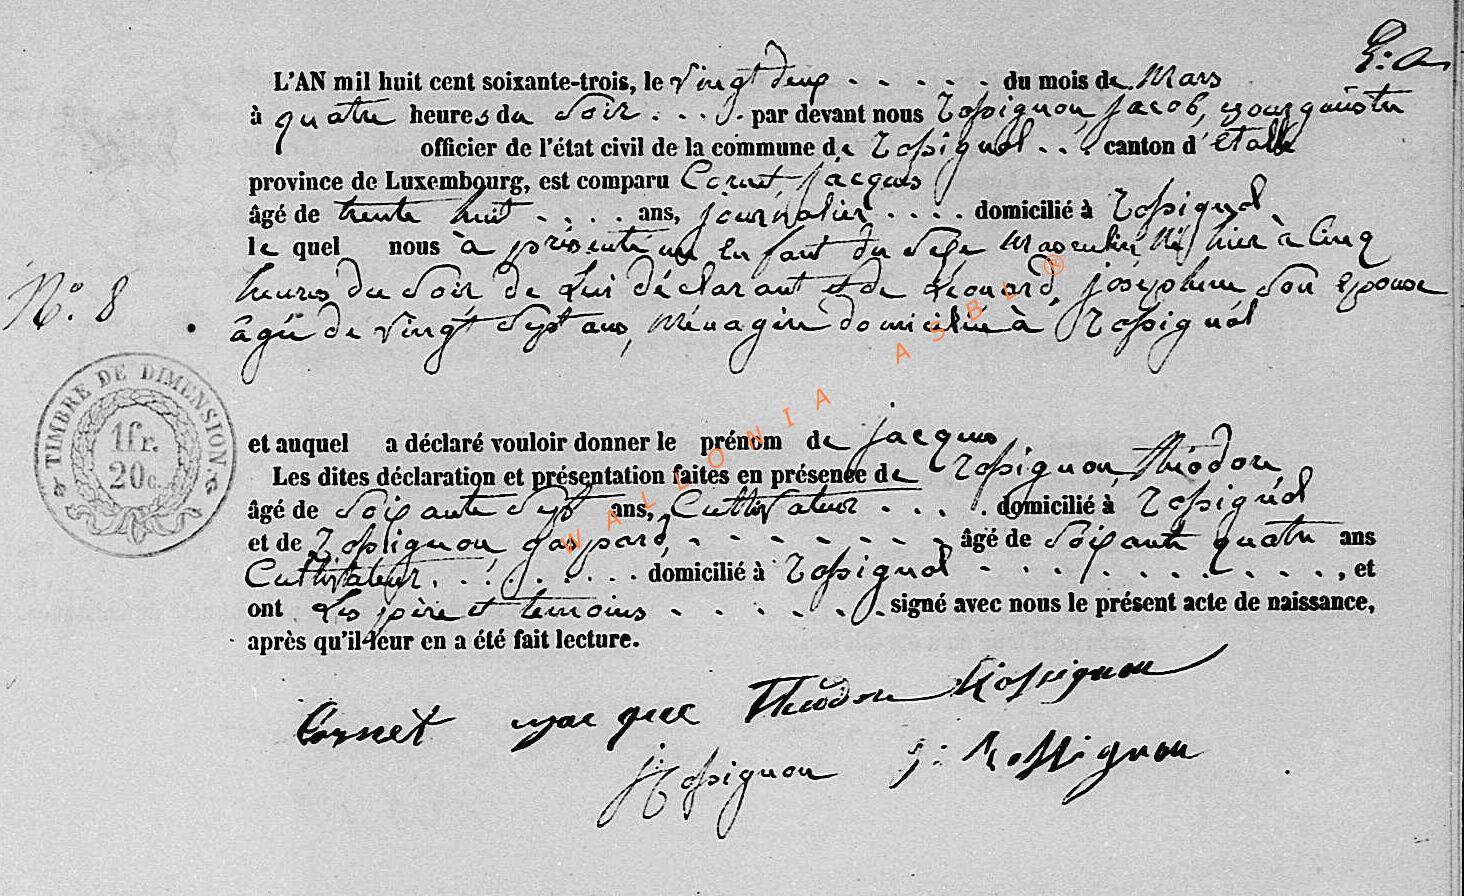 L'AN mil huit cent soixante-trois, le vingt deux . . . . . du mois de Mars
à quatre heures du soir . . . . par devant nous Rossignon, jacob, Bourgmestre
officier de l'état civil de la commune de Rossignol . . . canton d'étalle
province de Luxembourg, est comparu Cornet, jacques
âgé de trente huit . . . . ans, journalier . . . . domicilié à Rossignol
le quel nous à présenté un enfant du sexe Masculin, Né hier à Cinq
heures du soir de Lui déclarant et de Léonard, joséphine son épouse
âgée de vingt sept ans, Ménagère domiciliée à Rossignol
N° 8
TIMBRE DE DIMENSION.
1fr.
20c.
et auquel a déclaré vouloir donner le prénom de jacques
Les dites déclaration et présentation faites en présence de Rossignon, théodore
âgé de soixante sept ans, Cultivateur . . . . domicilié à Rossignol
et de Rossignon, gaspard, - - - - - - - - âgé de soixante quatre ans
Cultivateur . . . . . . . . domicilié à Rossignol - - - . . . . . . . . , et
ont Les père et temoins . . . . . . signé avec nous le présent acte de naissance,
après qu'il leur en a été fait lecture.
Cornet jacque Théodore Rossignon
j Rossignon g: Rossignon
WALLONIA ASBL ®